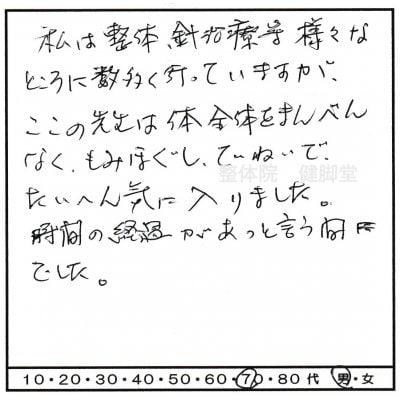 私は整体、針治療等様々な
ところに数多く行っていますが、
ここの先生は体全体をまんべん
なく、もみほぐし、ていねいで、
たいへん気に入りました。
時間の経過があっと言う間
でした。
整体院 健脚堂
10・20・30・40・50・60・70・80 代 男・女